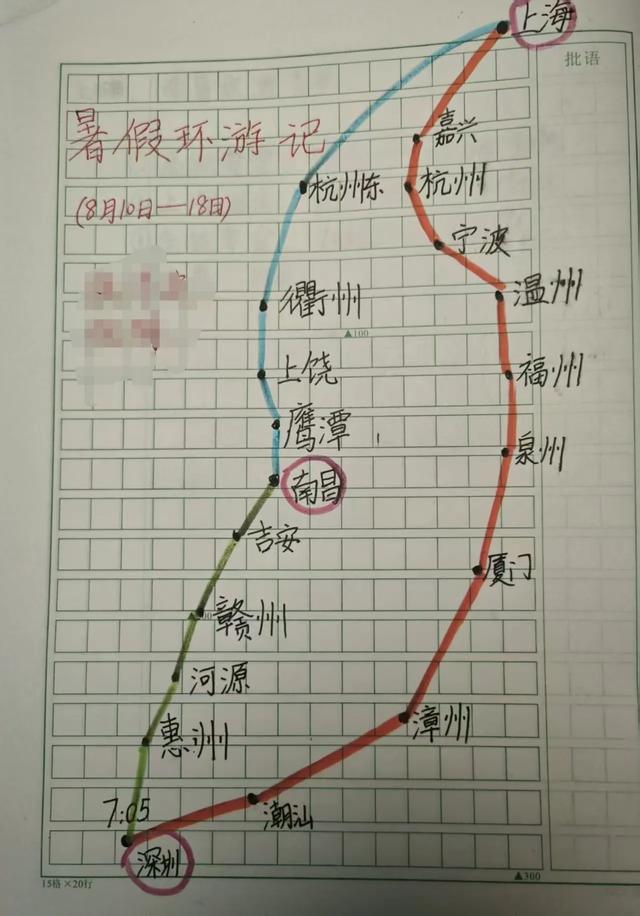 上海
批语
嘉兴
暑假环游记
杭州东
杭州
(8月10日—18日)
宁波
衢州
温州
▲100
上饶
福州
鹰潭
泉州
南昌
吉安
厦门
赣州
河源
漳州
惠州
7:05
潮汕
深圳
15格×20行
▲300